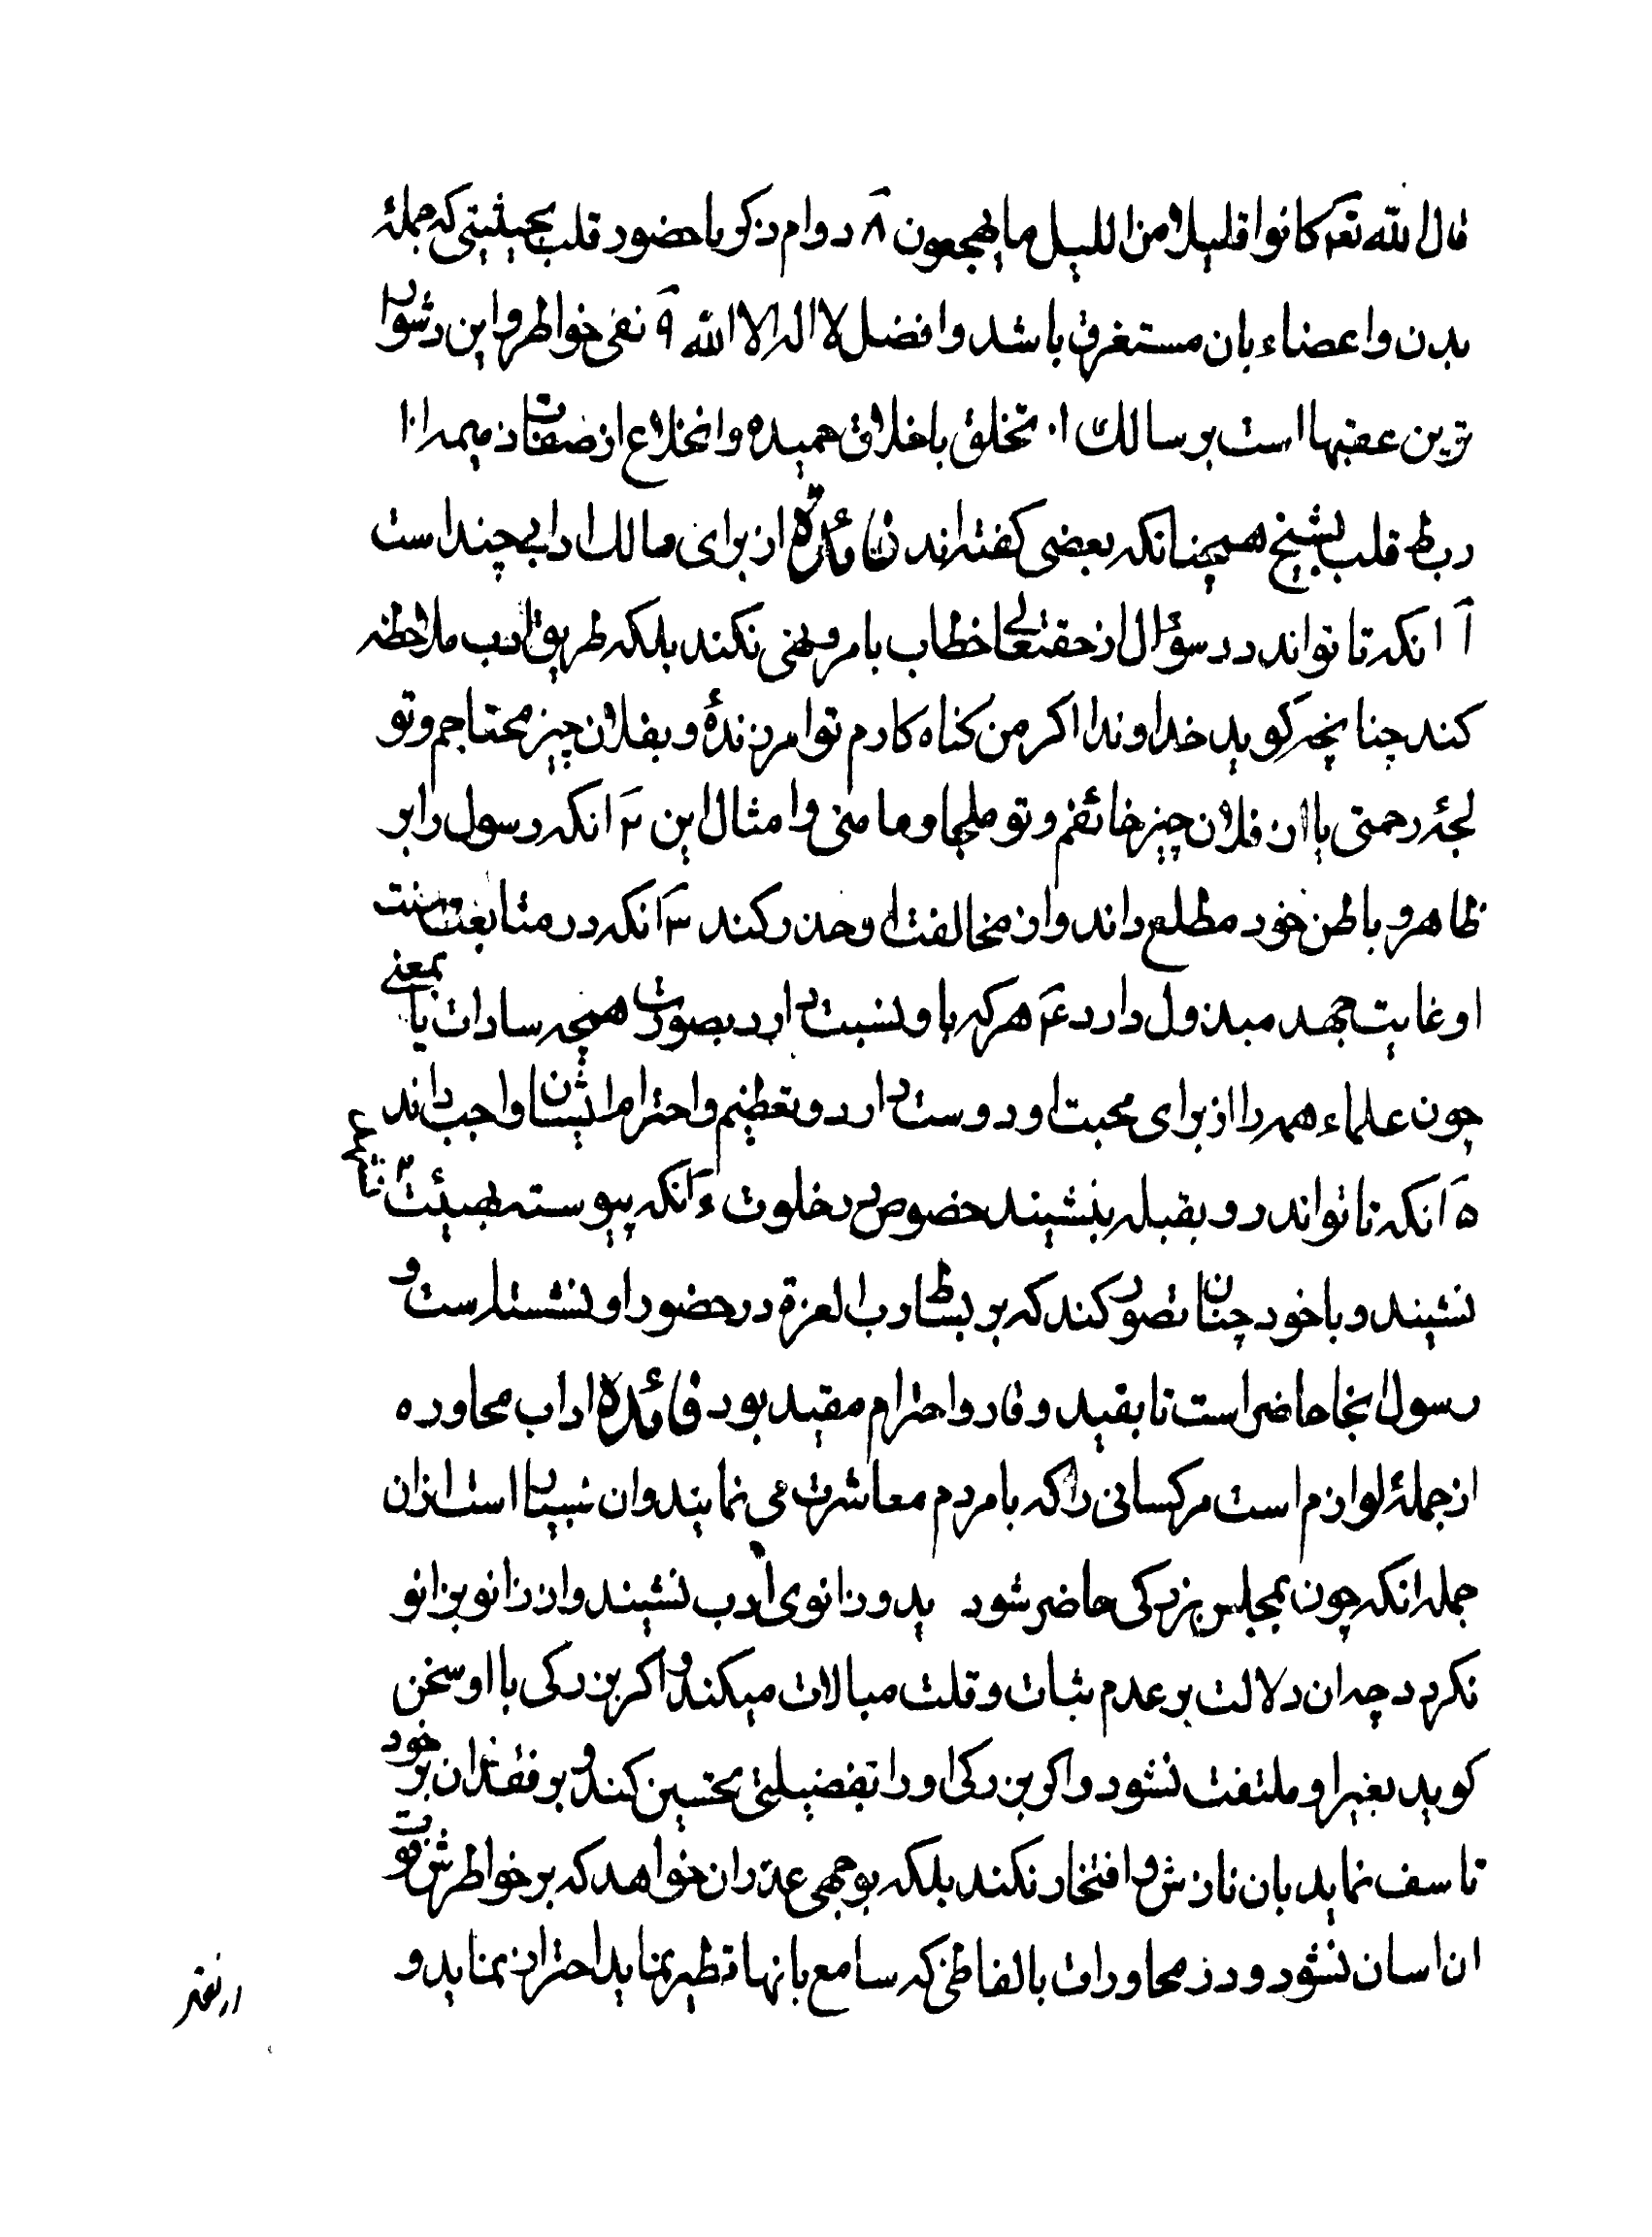 قال الله تعم كانوا قليلا من الليل ما يهجعون ۸ دوام ذكر با حضور قلب بحيثيتى كه جملهٔ
بدن و اعضاء بان مستغرق باشد و افضل لا اله الا الله ۹ نفى خواطر و اين دشوار
ترين عقبها است بر سالك ۱۰ تخلق باخلاق حميده و انخلاع از صفات ذميمه ۱۰
ربط قلب بشيخ همچنانكه بعضى كفته اند فائدة از براى سالك ادابى چند است
۱ انكه تا تواند در سؤال از حقتعالى خطاب بامر و نهى نكند بلكه طريق ادب ملاحظه
كند چنانچه كويد خداوندا اكر من كناه كارم تو امرزندهٔ و بفلان چيز محتاجم و تو
لجهٔ رحمتى يا از فلان چيز خائفم و تو ملجا و مامنى و امثال اين ۲ انكه رسول را بر
ظاهر و باطن خود مطلع داند و از مخالفت او حذر كند ۳ انكه در متابعت سنت
او غايت جهد مبذول دارد ۴ هر كه باو نسبت دارد بصورت همچه سادات يا بمعنى
چون علماء همه را از براى محبت او دوست دارد و تعظيم و احترام ايشان واجب داند
۵ انكه تا تواند رو بقبله بنشيند خصوص در خلوت ۶ انكه پيوسته بهيئت تشهد
نشيند و با خود چنان تصور كند كه بر بساط رب العزة در حضور او نشسته است و
رسول انجا حاضر است تا بقيد وقار و احترام مقيد بود فائدة اداب محاوره
از جملهٔ لوازم است مر كسانى را كه با مردم معاشرت مى نمايند و ان بسيار است از ان
جمله انكه چون بمجلس بزركى حاضر شود بدو زانوى ادب نشيند و از زانو بزانو
نكردد چه ان دلالت بر عدم ثبات و قلت مبالات ميكند و اكر بزركى با او سخن
كويد بغير او ملتفت نشود و اكر بزركى او را بفضيلتى تحسين كند و بر فقدان بر خود
تاسف نمايد بان نازش و افتخار نكند بلكه بوجهى عذر ان خواهد كه بر خواطرش فوت
ان اسان نشود و در محاورات بالفاظى كه سامع بانها تطير نمايد احتراز نمايد و